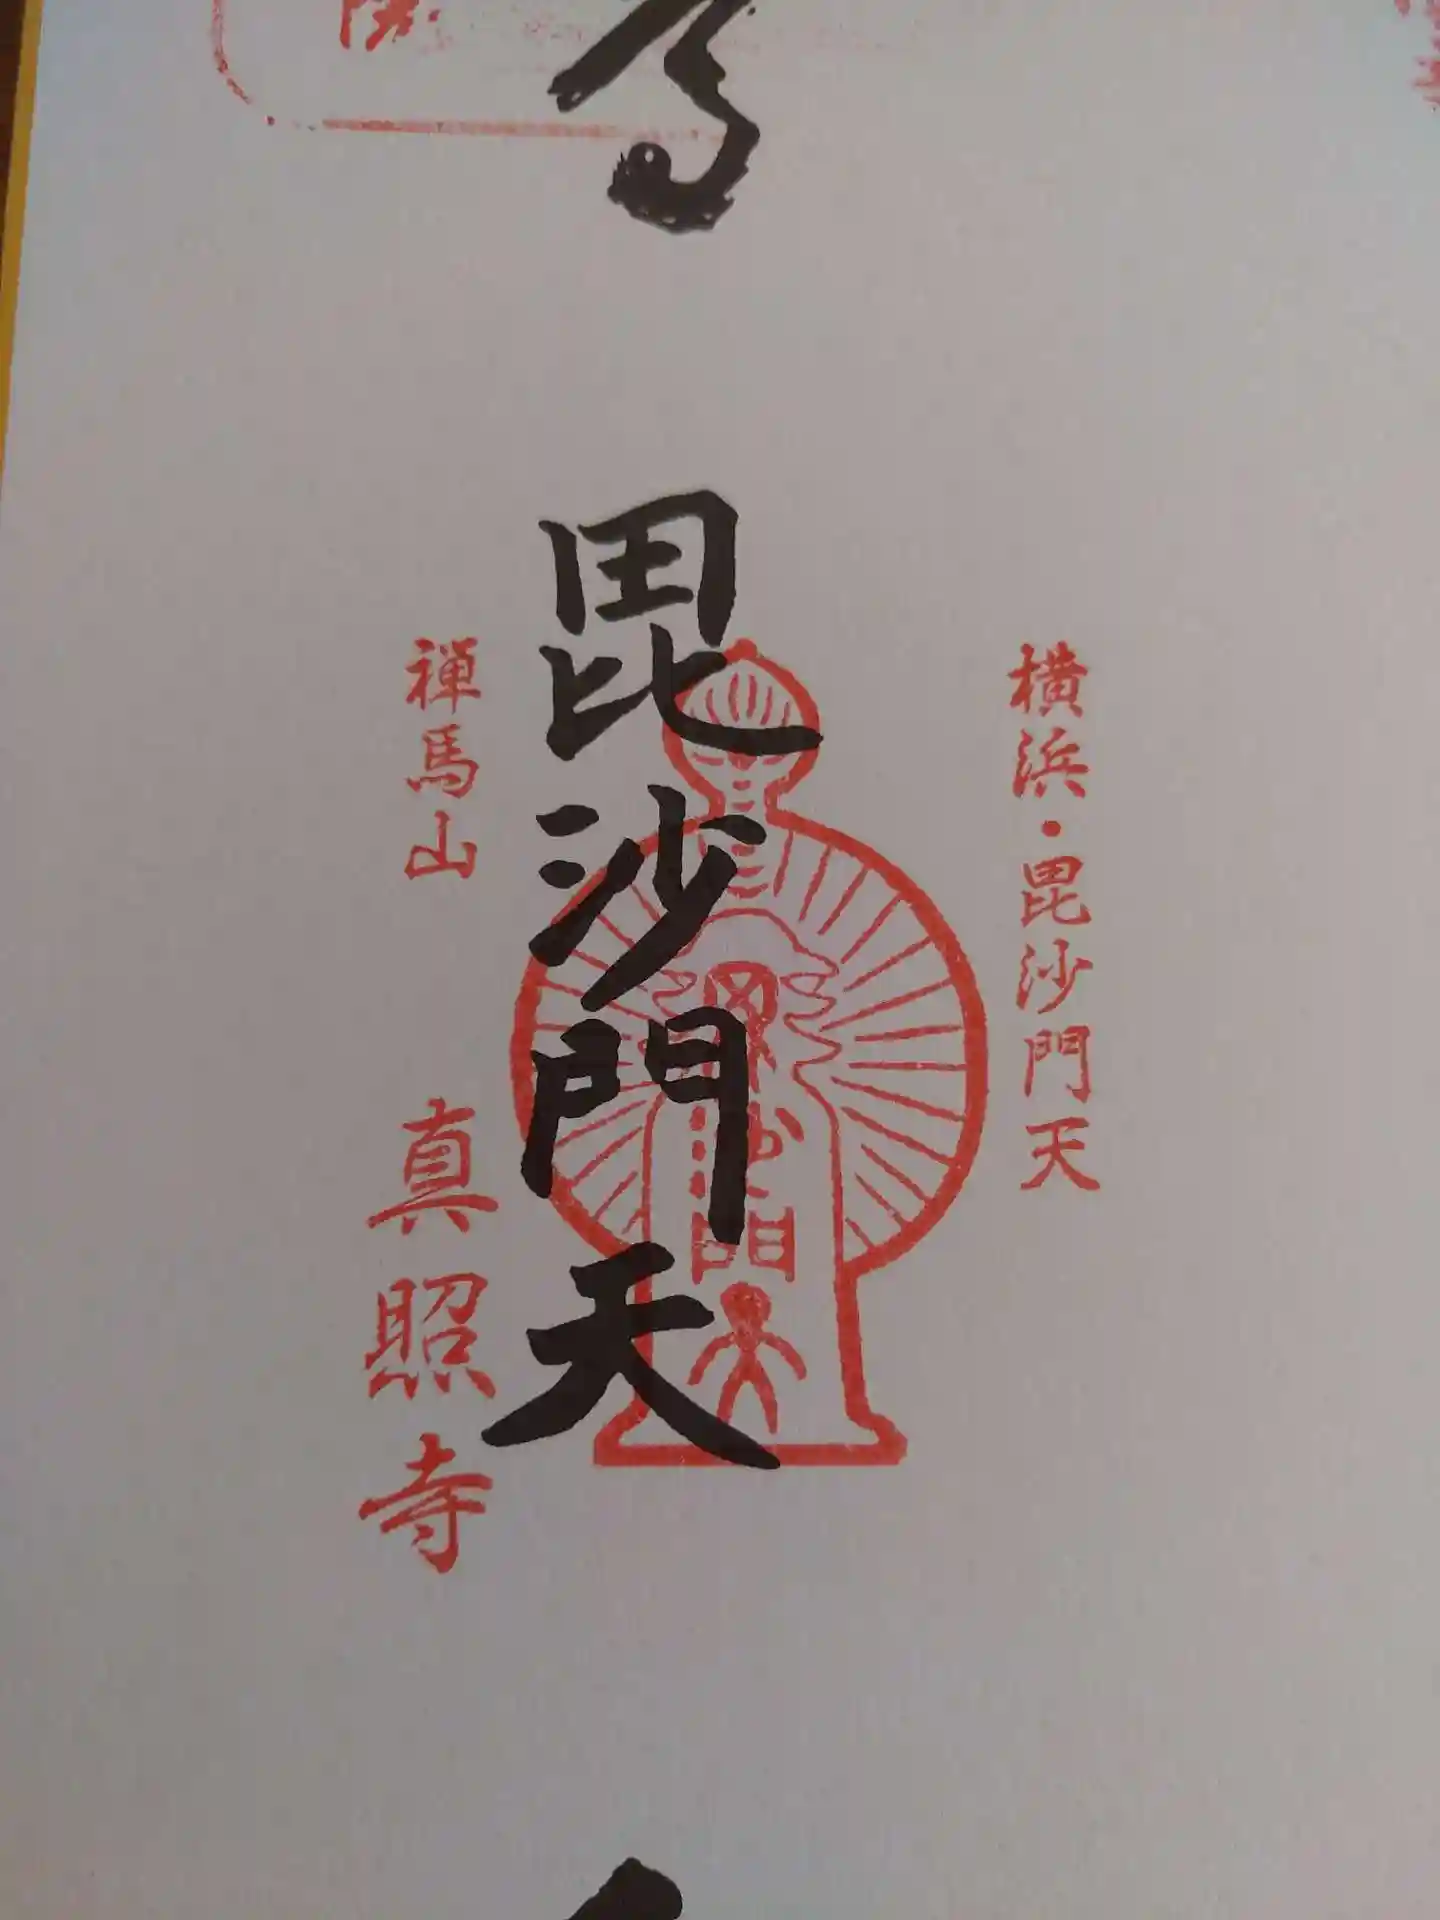 横浜・毘沙門天
毘沙門天
禅馬山
真照寺